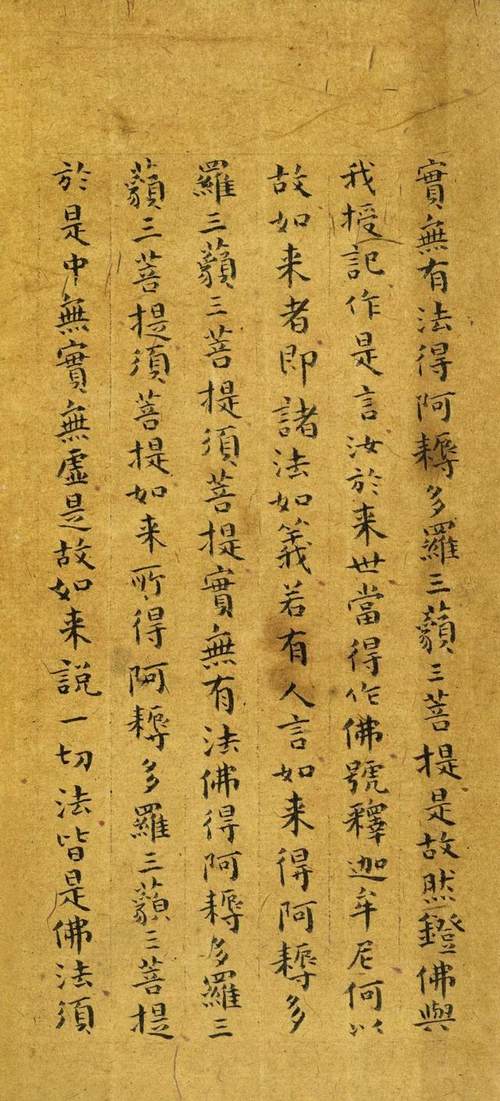 實無有法得阿耨多羅三藐三菩提是故然鐙佛與
我授記作是言汝於来世當得作佛號釋迦牟尼何以
故如来者即諸法如義若有人言如来得阿耨多
羅三藐三菩提須菩提實無有法佛得阿耨多羅三
藐三菩提須菩提如来所得阿耨多羅三藐三菩提
於是中無實無虛是故如来説一切法皆是佛法須